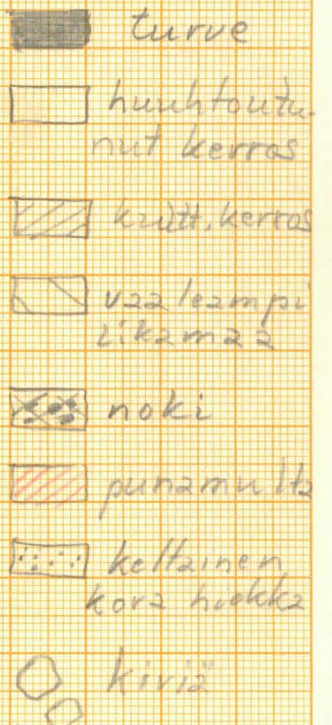 turve
huuhtoutu-
nut kerros
kultt. kerros
vaaleampi
likamaa
noki
punamulta
keltainen
kova hiekka
kiviä